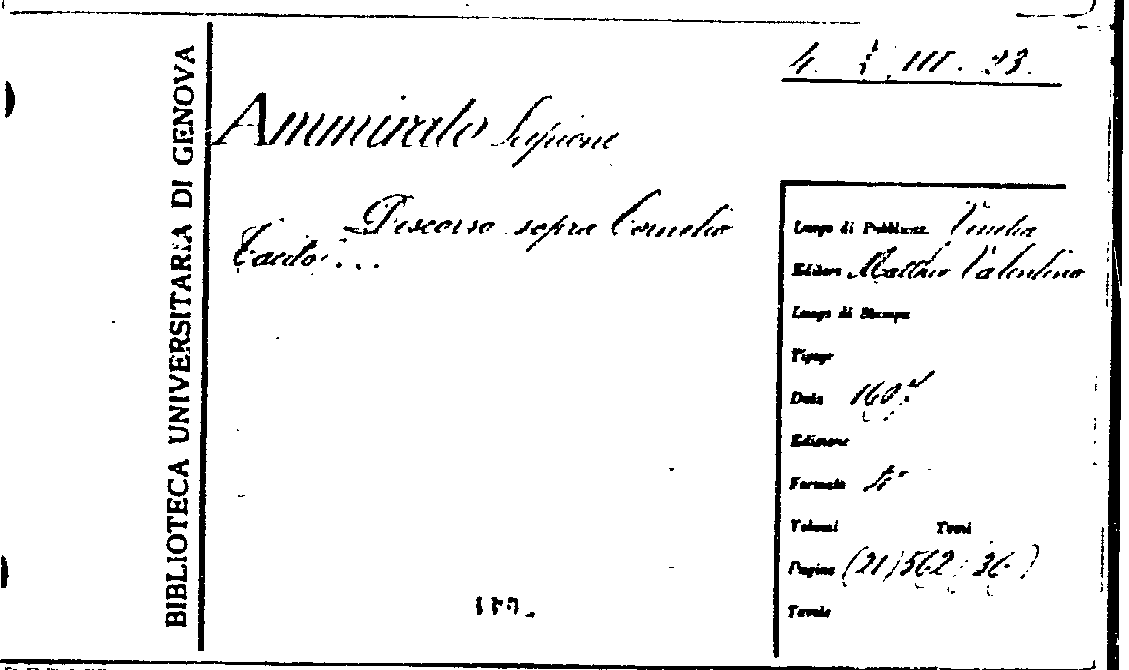 BIBLIOTECA UNIVERSITARIA DI GENOVA
4. III. 23.
Ammirato Scipione
Discorso sopra Cornelio
Tacito...
Luogo di Pubblicaz. Venetia
Editore Mattheo Valentino
Luogo di Stampa
Tipogr
Data
Edizione
Formato 4°
Volumi Tomi
Pagine (21) 562 (36)
Tavole